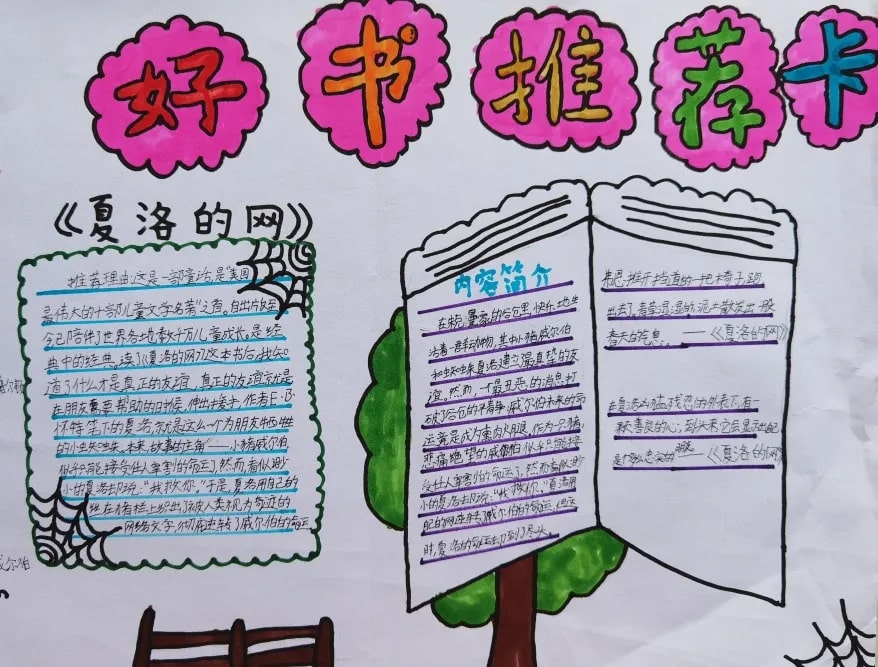 好书推荐卡
《夏洛的网》
推荐理由:这是一部童话,是"美国
最伟大的十部儿童文学名著"之首。自出版至
今已陪伴了世界各地数千万儿童成长。是经
典中的经典。读了《夏洛的网》这本书后,我知
道了什么才是真正的友谊,真正的友谊就是
在朋友需要帮助的时候,伸出援手,作者E·B·
怀特笔下的夏洛就是这么一个为朋友牺牲
的小蜘蛛。本来,故事的主角——小猪威尔伯
似乎只能接受任人宰割的命运,然而看似渺
小的夏洛去口说:"我救你。"于是,夏洛用自己的
丝在猪栏上织出了被人类视为奇迹的
网络文字,彻底逆转了威尔伯的命运
内容简介
在朱克曼家的谷仓里,快乐地生
活着一群动物,其中小猪威尔伯
和蜘蛛夏洛建立了最真挚的友
谊。然而,一个最丑恶的消息打
破了谷仓的平静:威尔伯未来的命
运竟是成为熏肉火腿。作为一只猪,
悲痛绝望的威尔伯似乎只能接
受任人宰割的命运了,然而看似渺
小的夏洛去口说:"我救你。"夏洛用
自己的网逆转了威尔伯的命运,但这
时,夏洛的命运却到了尽头。
弗恩推开挡道的一把椅子,跑
出去了。青草湿湿的,泥土散发出一股
春天的气息。——《夏洛的网》
在夏洛凶猛、残忍的外表下,有一
颗善良的心,到头来它会显示出自己
是个多么忠实的朋友。——《夏洛的网》
威尔伯